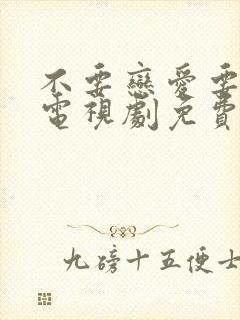 不要戀愛要
電視劇免費
九磅十五便士